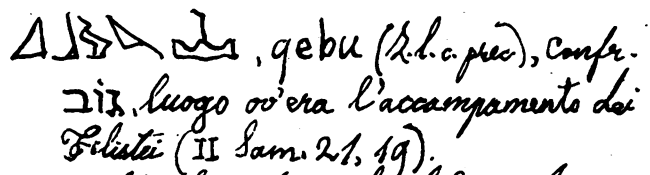 , qebu (L. l. c. prec.), confr.
גוֹב, luogo ov'era l'accampamento dei
Filistei (II Sam. 21, 19).